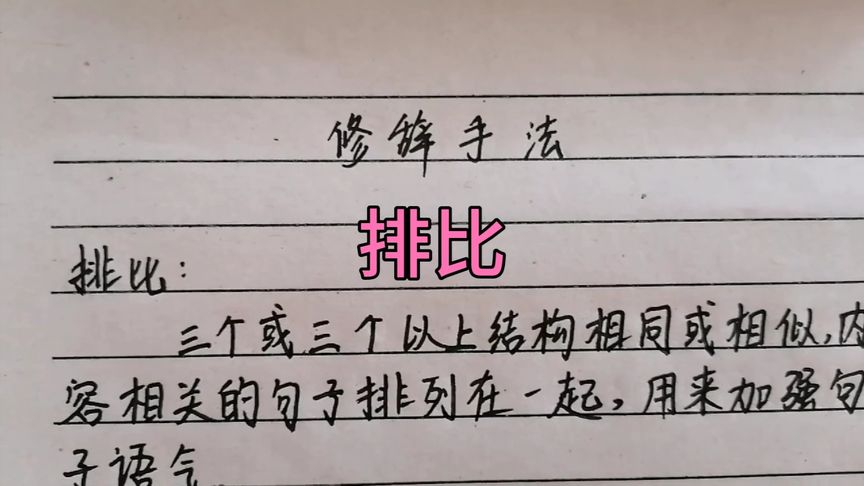 修辞手法
排比
排比：
三个或三个以上结构相同或相似,内
容相关的句子排列在一起，用来加强句
子语气